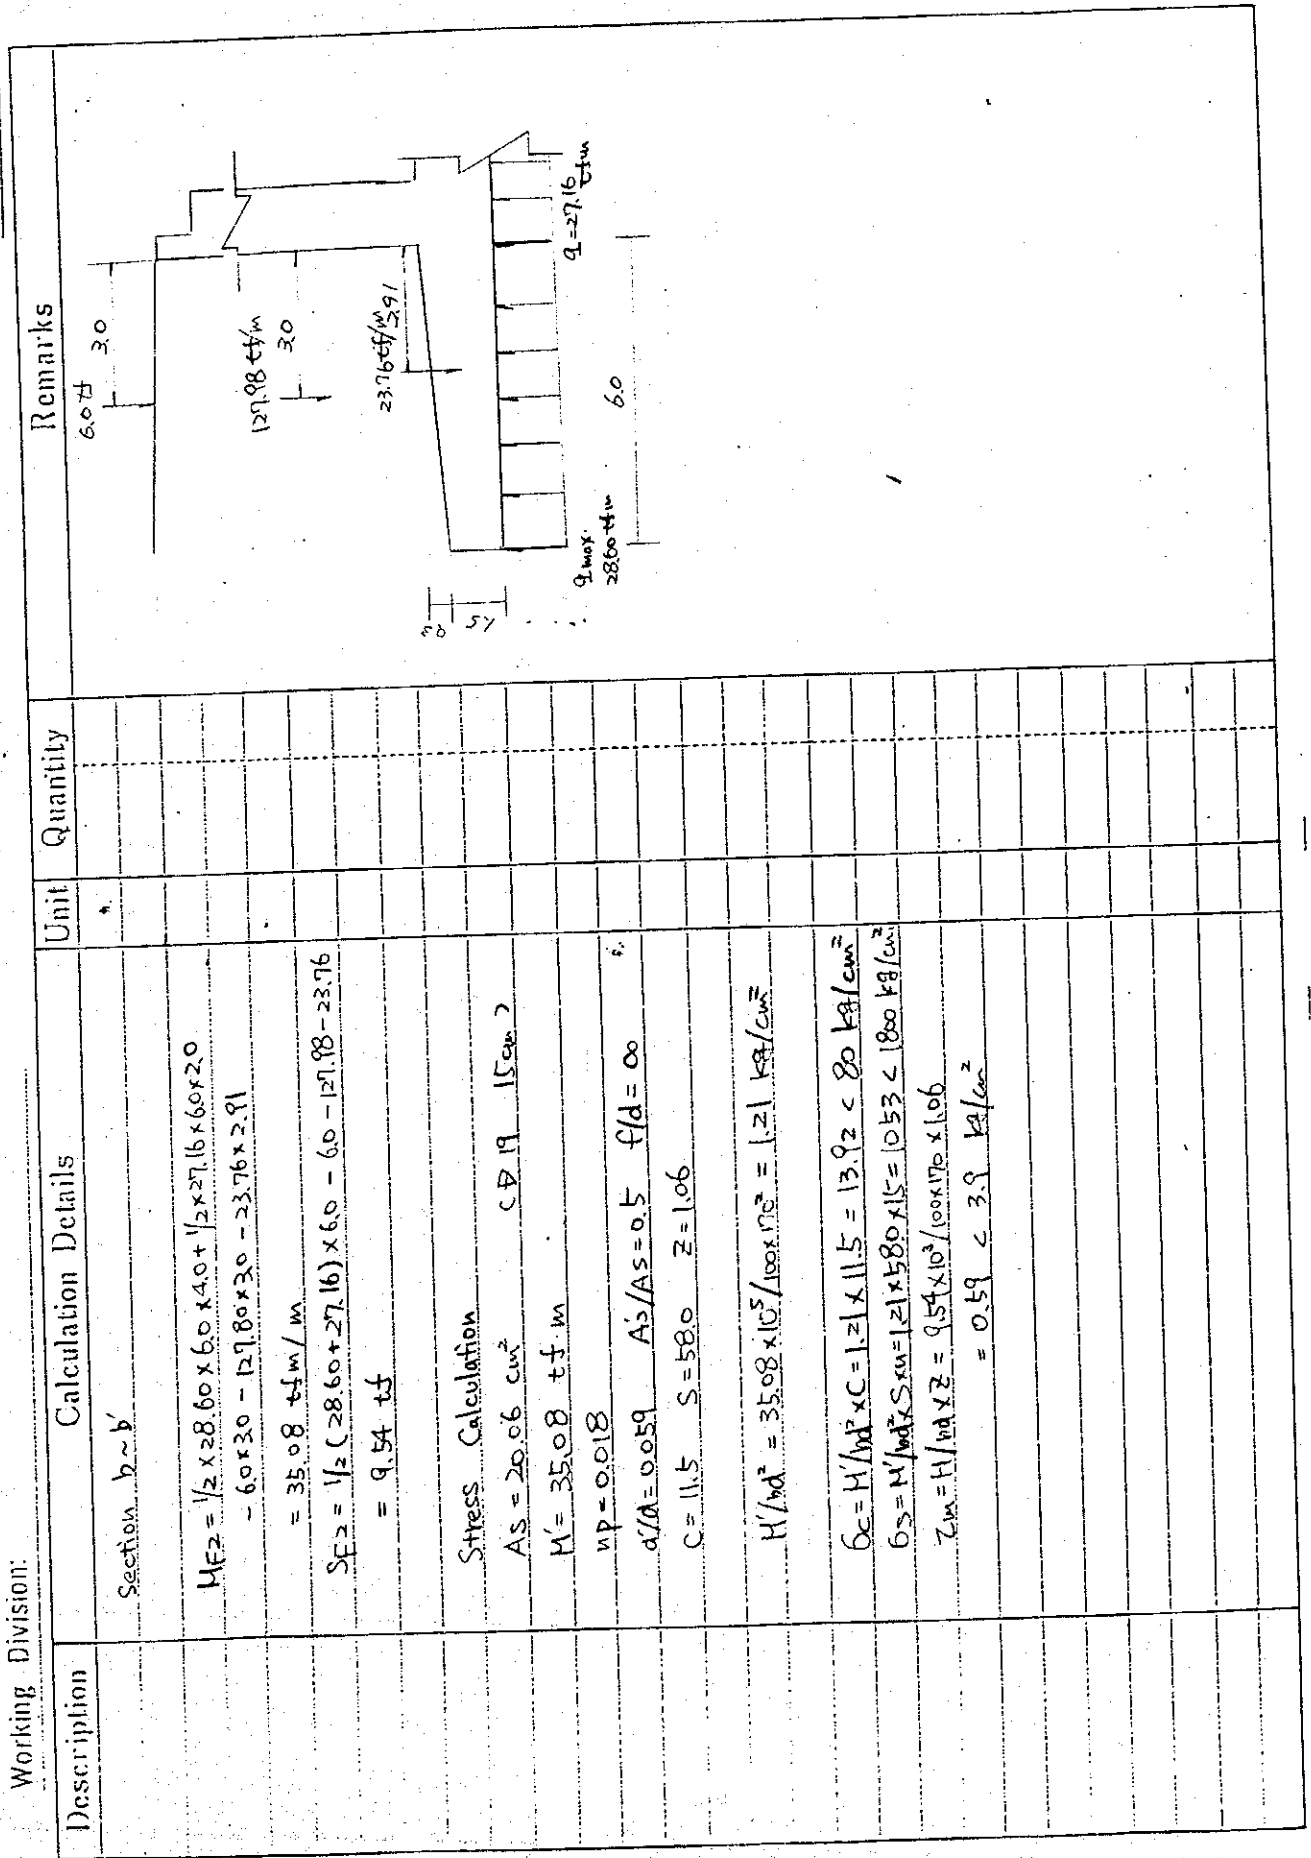 Working Division:
Description Calculation Details Unit Quantity Remarks
Section b~b'
MF2 = 1/2 × 28.60 × 6.0 × 4.0 + 1/2 × 27.16 × 6.0 × 2.0
- 6.0 × 3.0 - 127.80 × 3.0 - 23.76 × 2.91
= 35.08 tfm/m
SF2 = 1/2 (28.60 + 27.16) × 6.0 - 6.0 - 127.98 - 23.76
= 9.54 tf
Stress Calculation
As = 20.06 cm² (D 19 15cm)
M' = 35.08 tf·m
np = 0.018
d'/d = 0.059 A's/As = 0.5 f/d = ∞
C = 11.5 S = 58.0 Z = 1.06
M'/bd² = 35.08 × 10⁵/100×170² = 1.21 kg/cm²
σc = M'/bd² × C = 1.21 × 11.5 = 13.92 < 80 kg/cm²
σs = M'/bd² × S × n = 1.21 × 580 × 15 = 1053 < 1800 kg/cm²
τm = H/bd × Z = 9.54 × 10³/100×170 × 1.06
= 0.59 < 3.9 kg/cm²
6.0 tf
3.0
127.98 tf/m
3.0
23.76 tf/m
2.91
q max.
28.60 tfm
q = 27.16 tfm
6.0